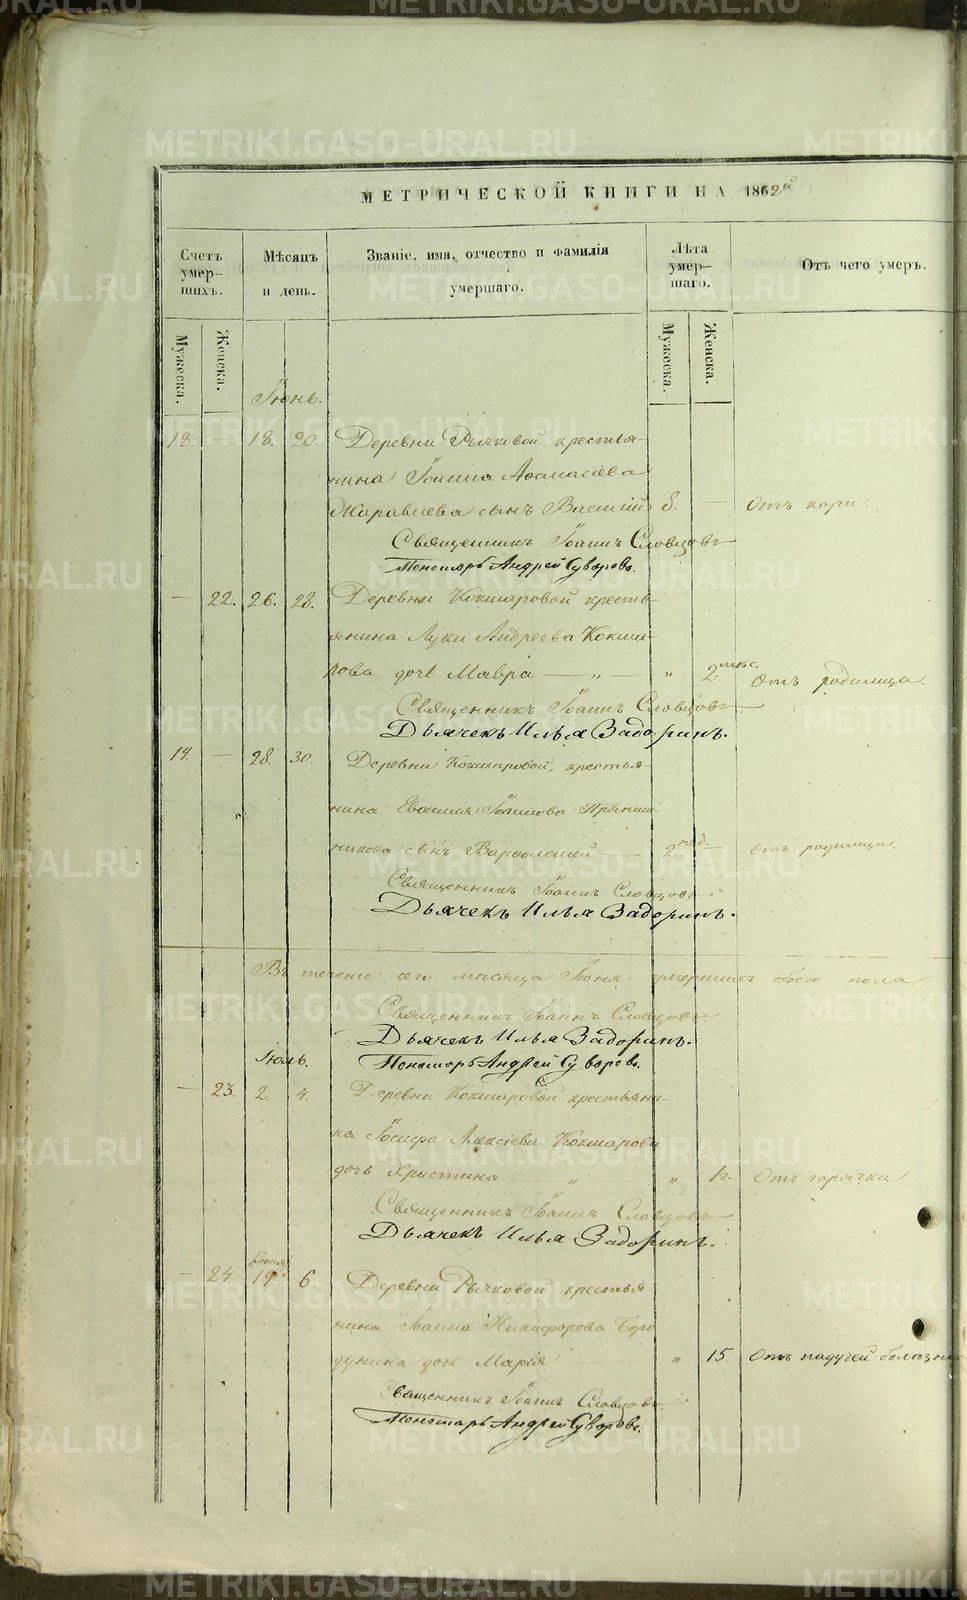 МЕТРИЧЕСКОЙ КНИГИ НА 1862й
Счетъ умершихъ.
Мѣсяцъ и день.
Званіе, имя, отчество и фамилія умершаго.
Лѣта умершаго.
Отъ чего умеръ.
Мужеска.
Женска.
Мужеска.
Женска.
Іюнь.
18. — 18. 20. Деревни Рычковой крестья-
нина Іоанна Аѳанасіева
сынъ Василій 8. — отъ кори.
Священникъ Іоаннъ Словцовъ
Пономарь Андрей Суворовъ.
— 22. 26. 28. Деревни Кокшаровой кресть-
янина Луки Андреева Кокша-
рова дочь Мавра — „ — „ 2 мѣс. отъ родимца
Священникъ Іоаннъ Словцовъ
Дьячекъ Илья Задоринъ.
19. — 28. 30. Деревни Кокшаровой, крестья-
нина Іоаннова Пряниш-
никова сынъ Варѳоломей — 2 нед. — отъ родимца.
Священникъ Іоаннъ Словцовъ
Дьячекъ Илья Задоринъ.
Въ теченіе сего мѣсяца Іюня умершихъ обоего пола
Священникъ Іоаннъ Словцовъ
Дьячекъ Илья Задоринъ.
Іюль. Пономарь Андрей Суворовъ.
— 23. 2. 4. Деревни Кокшаровой крестьяни-
на Іосифа Алексіева Кокшарова
дочь Христина „ „ 1г. Отъ горячки
Священникъ Іоаннъ Словцовъ
Дьячекъ Илья Задоринъ.
Іюня
— 24. 19 6. Деревни Рычковой крестья-
нина Іоанна Никифорова Боро-
дунина дочь Марія „ 15 Отъ падучей болѣзни
Священникъ Іоаннъ Словцовъ
Пономарь Андрей Суворовъ.
METRIKI.GASO-URAL.RU